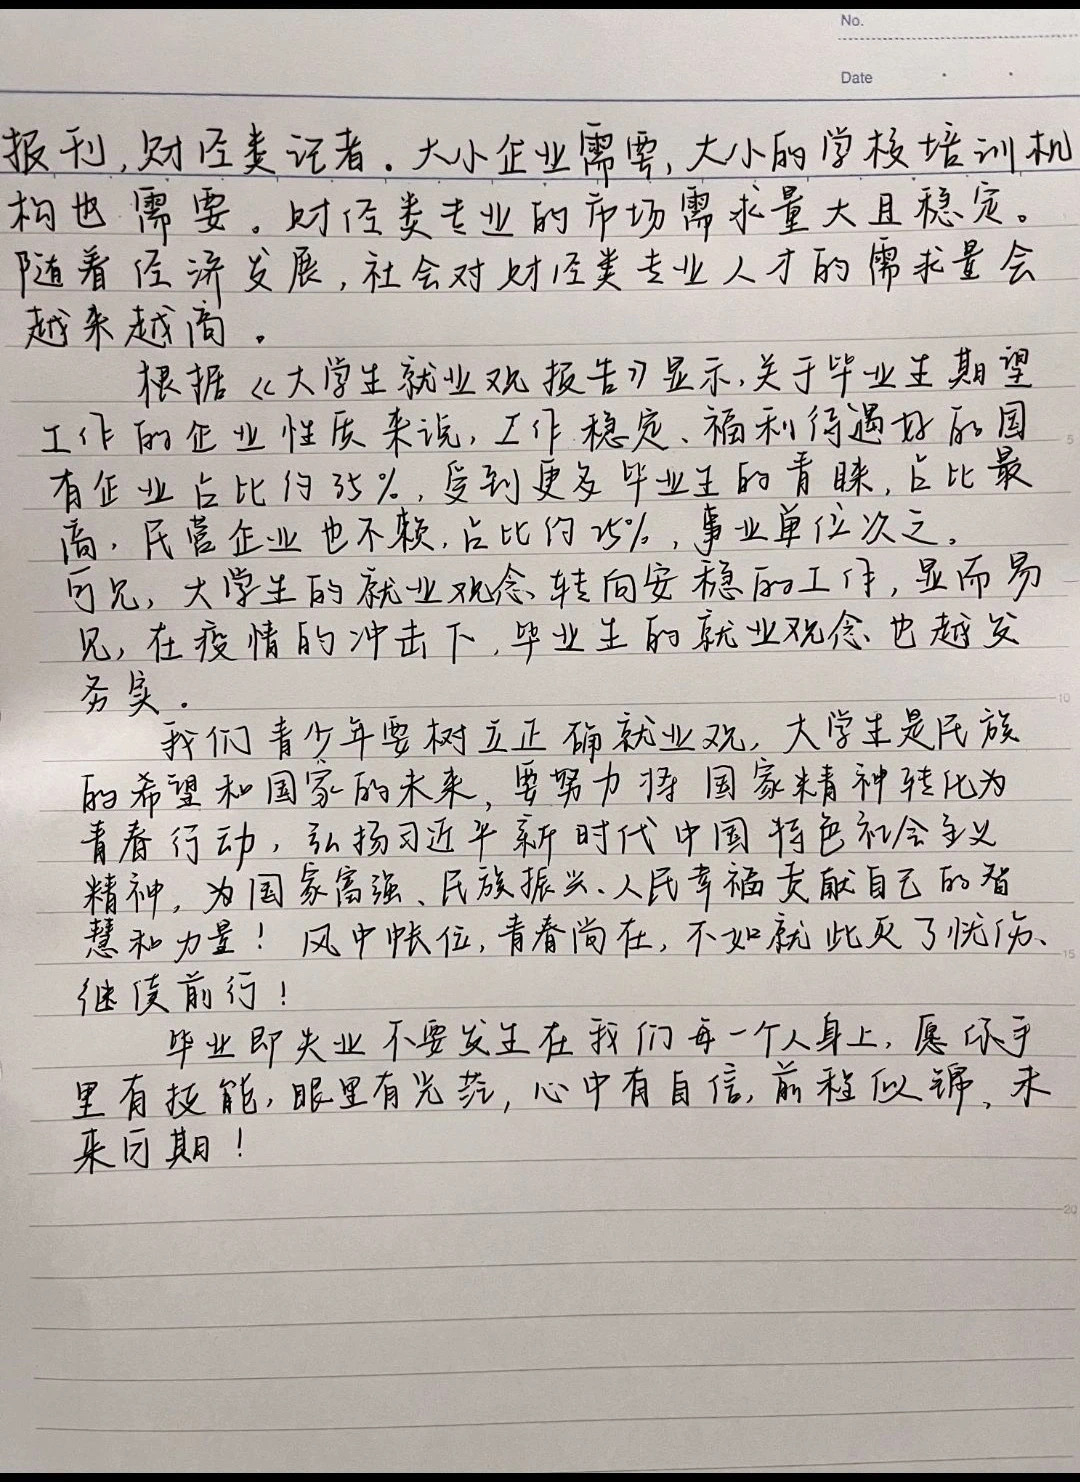 No.
Date
报刊,财经类记者。大小企业需要,大小的学校培训机
构也需要。财经类专业的市场需求量大且稳定。
随着经济发展,社会对财经类专业人才的需求量会
越来越高。
根据《大学生就业观报告》显示,关于毕业生期望
工作的企业性质来说,工作稳定、福利待遇好的国
有企业占比约35%,受到更多毕业生的青睐,占比最
高,民营企业也不赖,占比约25%,事业单位次之。
可见,大学生的就业观念转向安稳的工作,显而易
见,在疫情的冲击下,毕业生的就业观念也越发
务实。
我们青少年要树立正确就业观,大学生是民族
的希望和国家的未来,要努力将国家精神转化为
青春行动,弘扬习近平新时代中国特色社会主义
精神,为国家富强、民族振兴、人民幸福贡献自己的智
慧和力量!风中帐位,青春尚在,不如就此灭了忧伤、
继续前行!
毕业即失业不要发生在我们每一个人身上,愿你手
里有技能,眼里有光芒,心中有自信,前程似锦,未
来可期!
5
10
15
20